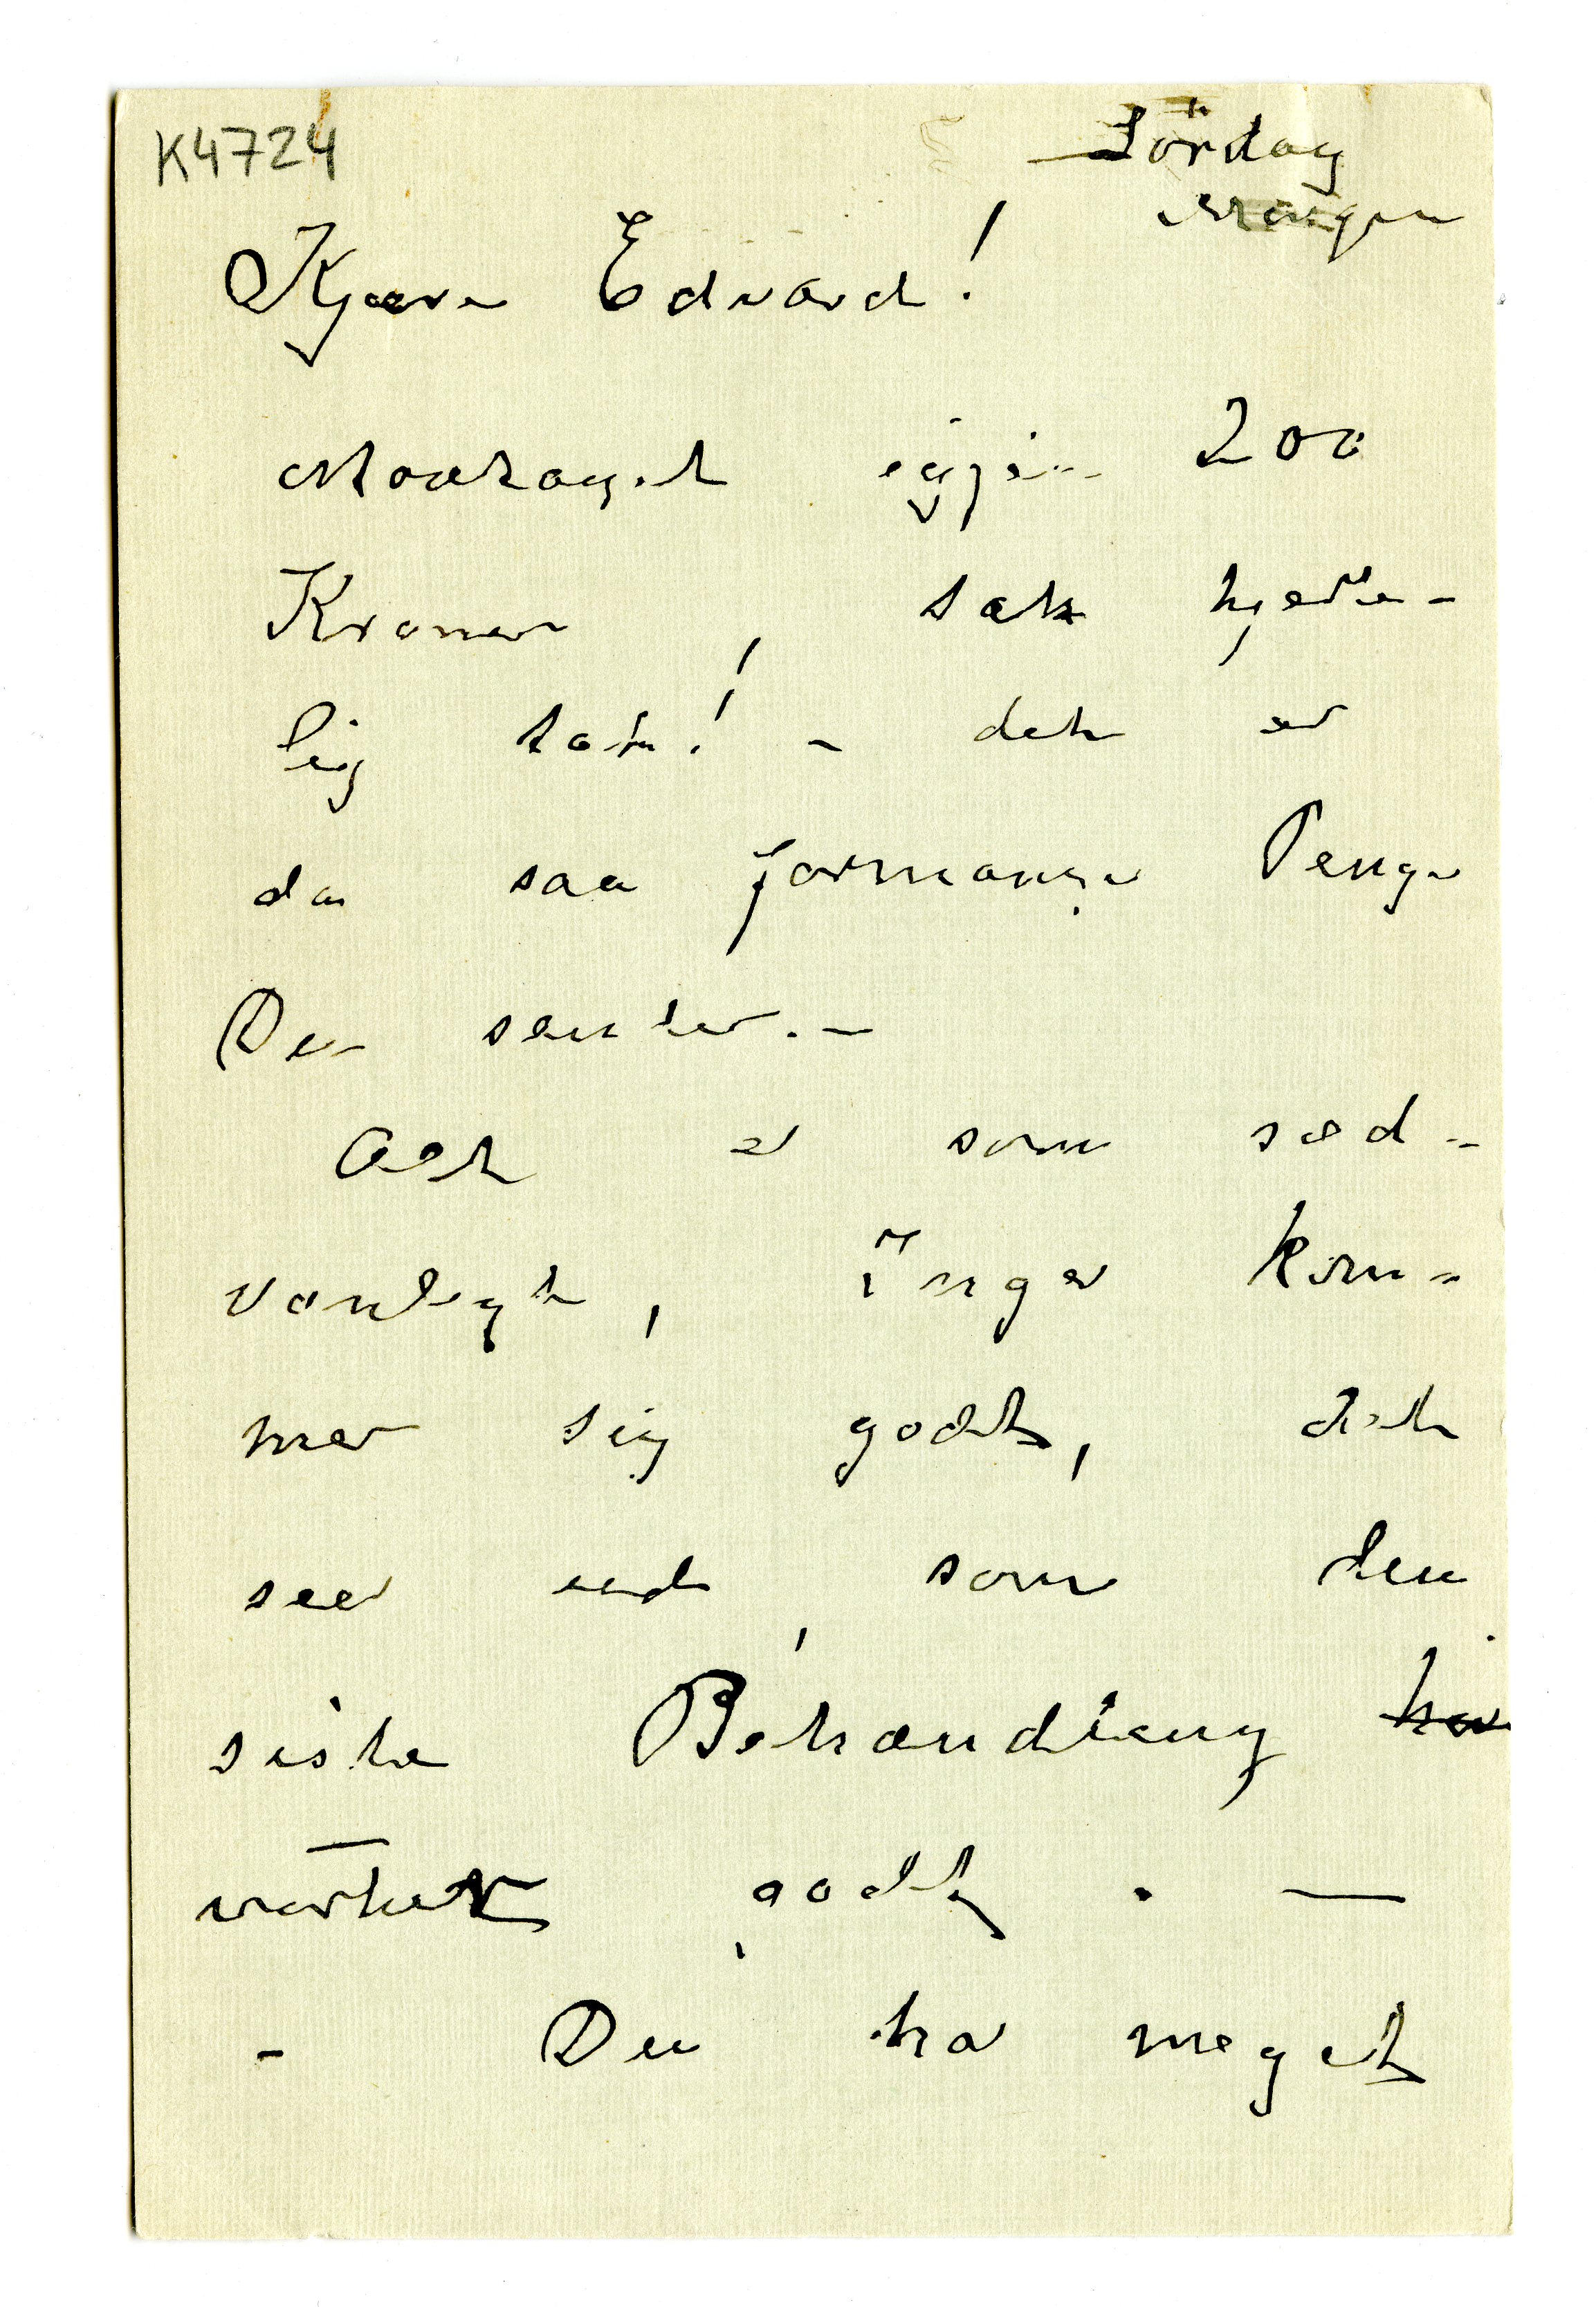 K4724
Lördag
Morgen
Kjære Edvard!
Modtaget igjen 200
Kroner, tak hjerte-
lig tak! – det er
da saa formange Penge
Du sender. –
Alt er som sed-
vanligt, Inger kom-
mer sig godt, det
seer ud, som den
siste Behandling har
virket godt. —
– Du har meget